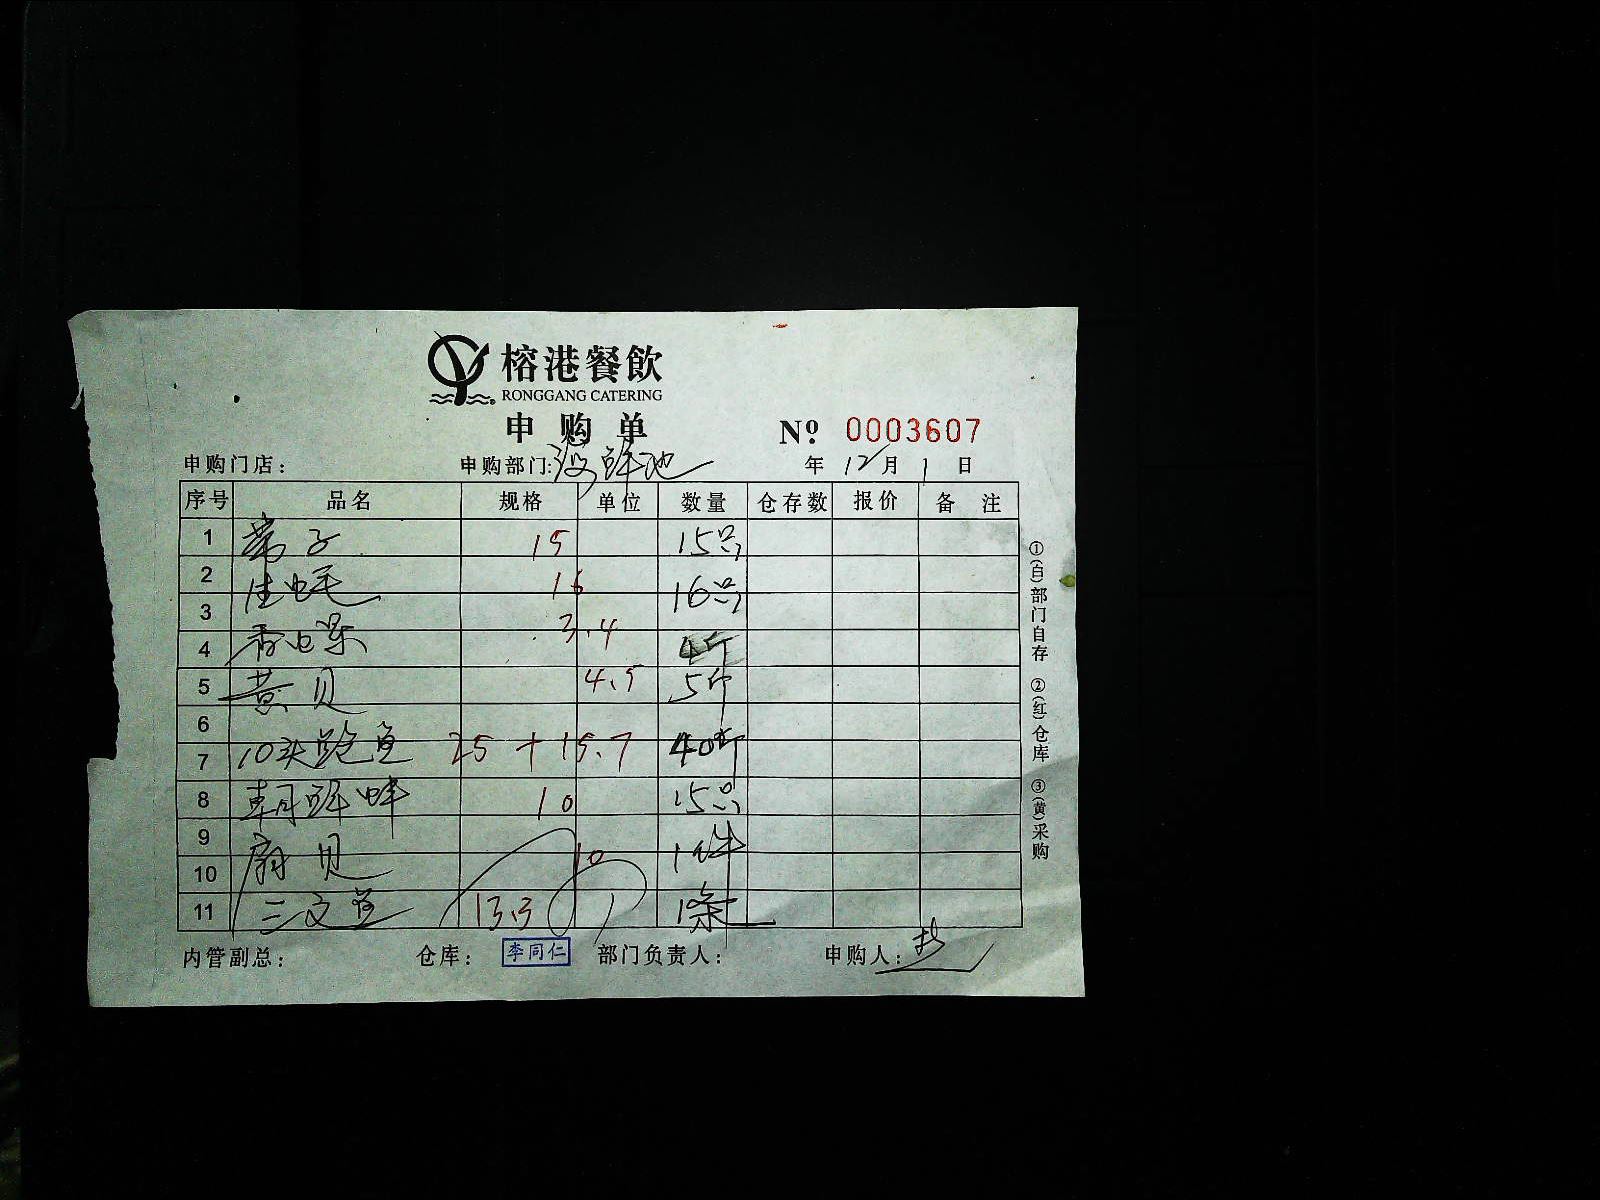 榕港餐飲
RONGGANG CATERING
申购单
Nº 0003607
申购门店： 申购部门: 海鲜池 年 12月 1 日
序号 品名 规格 单位 数量 仓存数 报价 备注
1 带子 15 15只
2 生蚝 16 16只
3 3.4
4 香螺 4斤
5 黄贝 4.5 5斤
6
7 10头鲍鱼 25 + 15.7 40斤
8 朝鲜蚌 10 15只
9
10 扇贝 10 1件
11 三文鱼 13.3 1条
内管副总： 仓库： 李同仁 部门负责人： 申购人：
①(白)部门自存 ②(红)仓库 ③(黄)采购